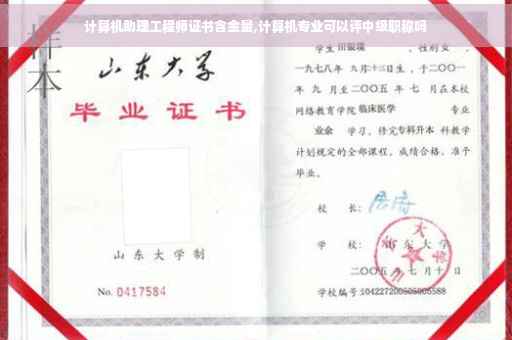 计算机助理工程师证书含金量,计算机专业可以评中级职称吗
样本
山东大学
毕业证书
山东大学制
No. 0417584
学生田银瑞 ,性别女 ,
一九七八年 九月十三日生,于二〇〇一
年 九 月至二〇〇五 年 七 月在本校
网络教育学院临床医学 专业
业余 学习,修完专科升本科教学
计划规定的全部课程,成绩合格,准予
毕业。
校 长:
学 校: 山东大学
二〇〇五 年 七 月 十 日
学校编号:104227200505005588